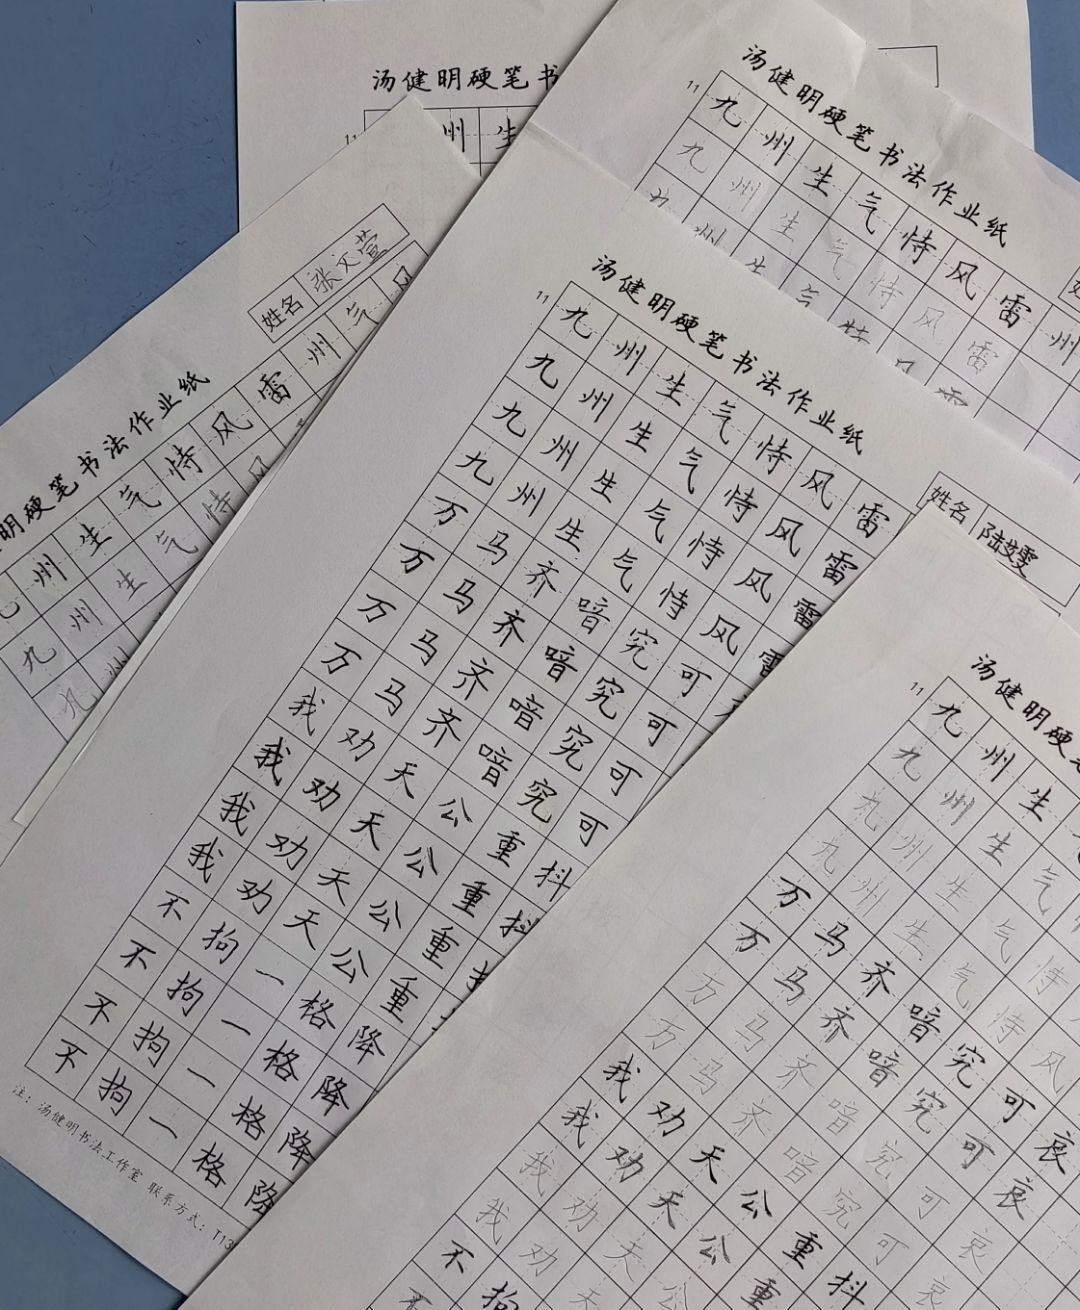 汤健明硬笔书
11
州生
汤健明硬笔书法作业纸
11
九州生气恃风雷州
九州生气恃风雷
九州生气恃风雷
姓名 张文萱
明硬笔书法作业纸
州生气恃风雷州气风
九州生气恃风
九州
汤健明硬笔书法作业纸
姓名 陆
11
九州生气恃风雷
九州生气恃风雷
九州生气恃风雷
九州生气恃风雷
万马齐喑究可
万马齐喑究可
万马齐喑究可
万马齐喑究可
我劝天公重抖
我劝天公重抖
我劝天公重
我劝天公重
不拘一格降
不拘一格降
不拘一格降
不拘一格降
注：汤健明书法工作室 联系方式：T13
汤健明硬
11
九州生
九州生气
九州生气恃
九州生气恃风
万马齐喑究可哀
万马齐喑究可哀
万马齐喑究可哀
万马齐喑究可哀
我劝天公重抖
我劝天公重
我劝天公
我劝
不拘